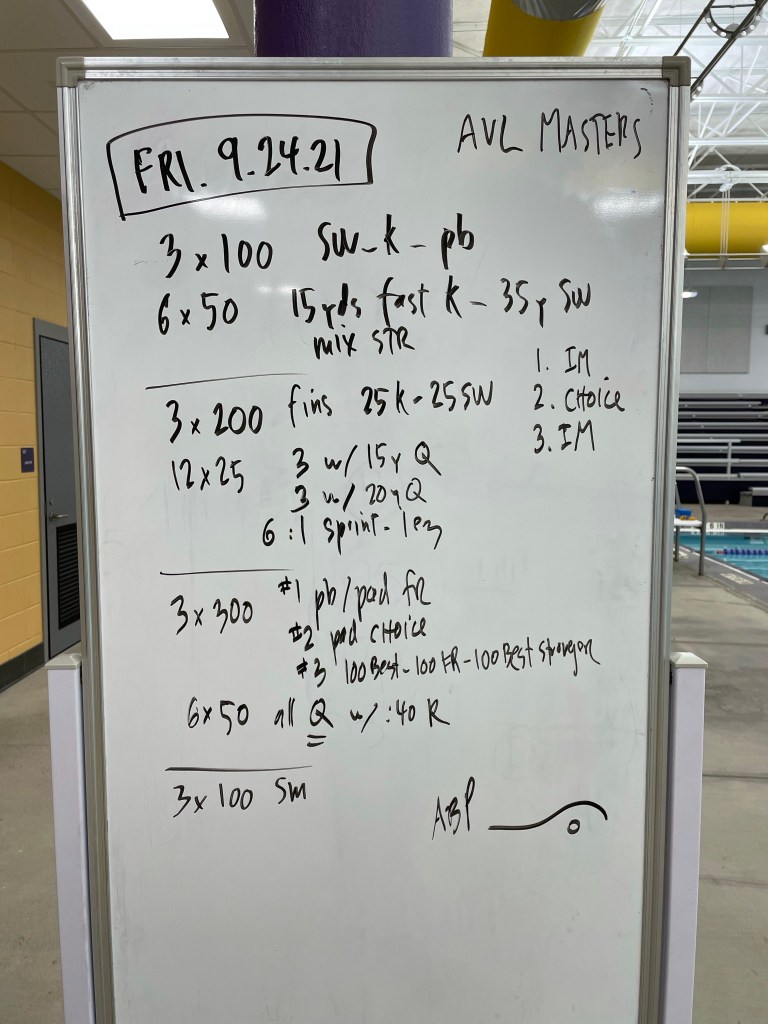 FRI. 9.24.21
AVL MASTERS
3 x 100 SW-K-pb
6 x 50 15yds fast K - 35y SW
mix STR
3 x 200 fins 25K-25SW
1. IM
2. CHOICE
3. IM
12x25 3 w/ 15y Q
3 w/ 20y Q
6 :1 sprint-1ez
3x300 #1 pb/pad FR
#2 pad CHOICE
#3 100Best-100FR-100Best stronger
6x50 all Q w/ :40 R
3x100 Sm
ABP